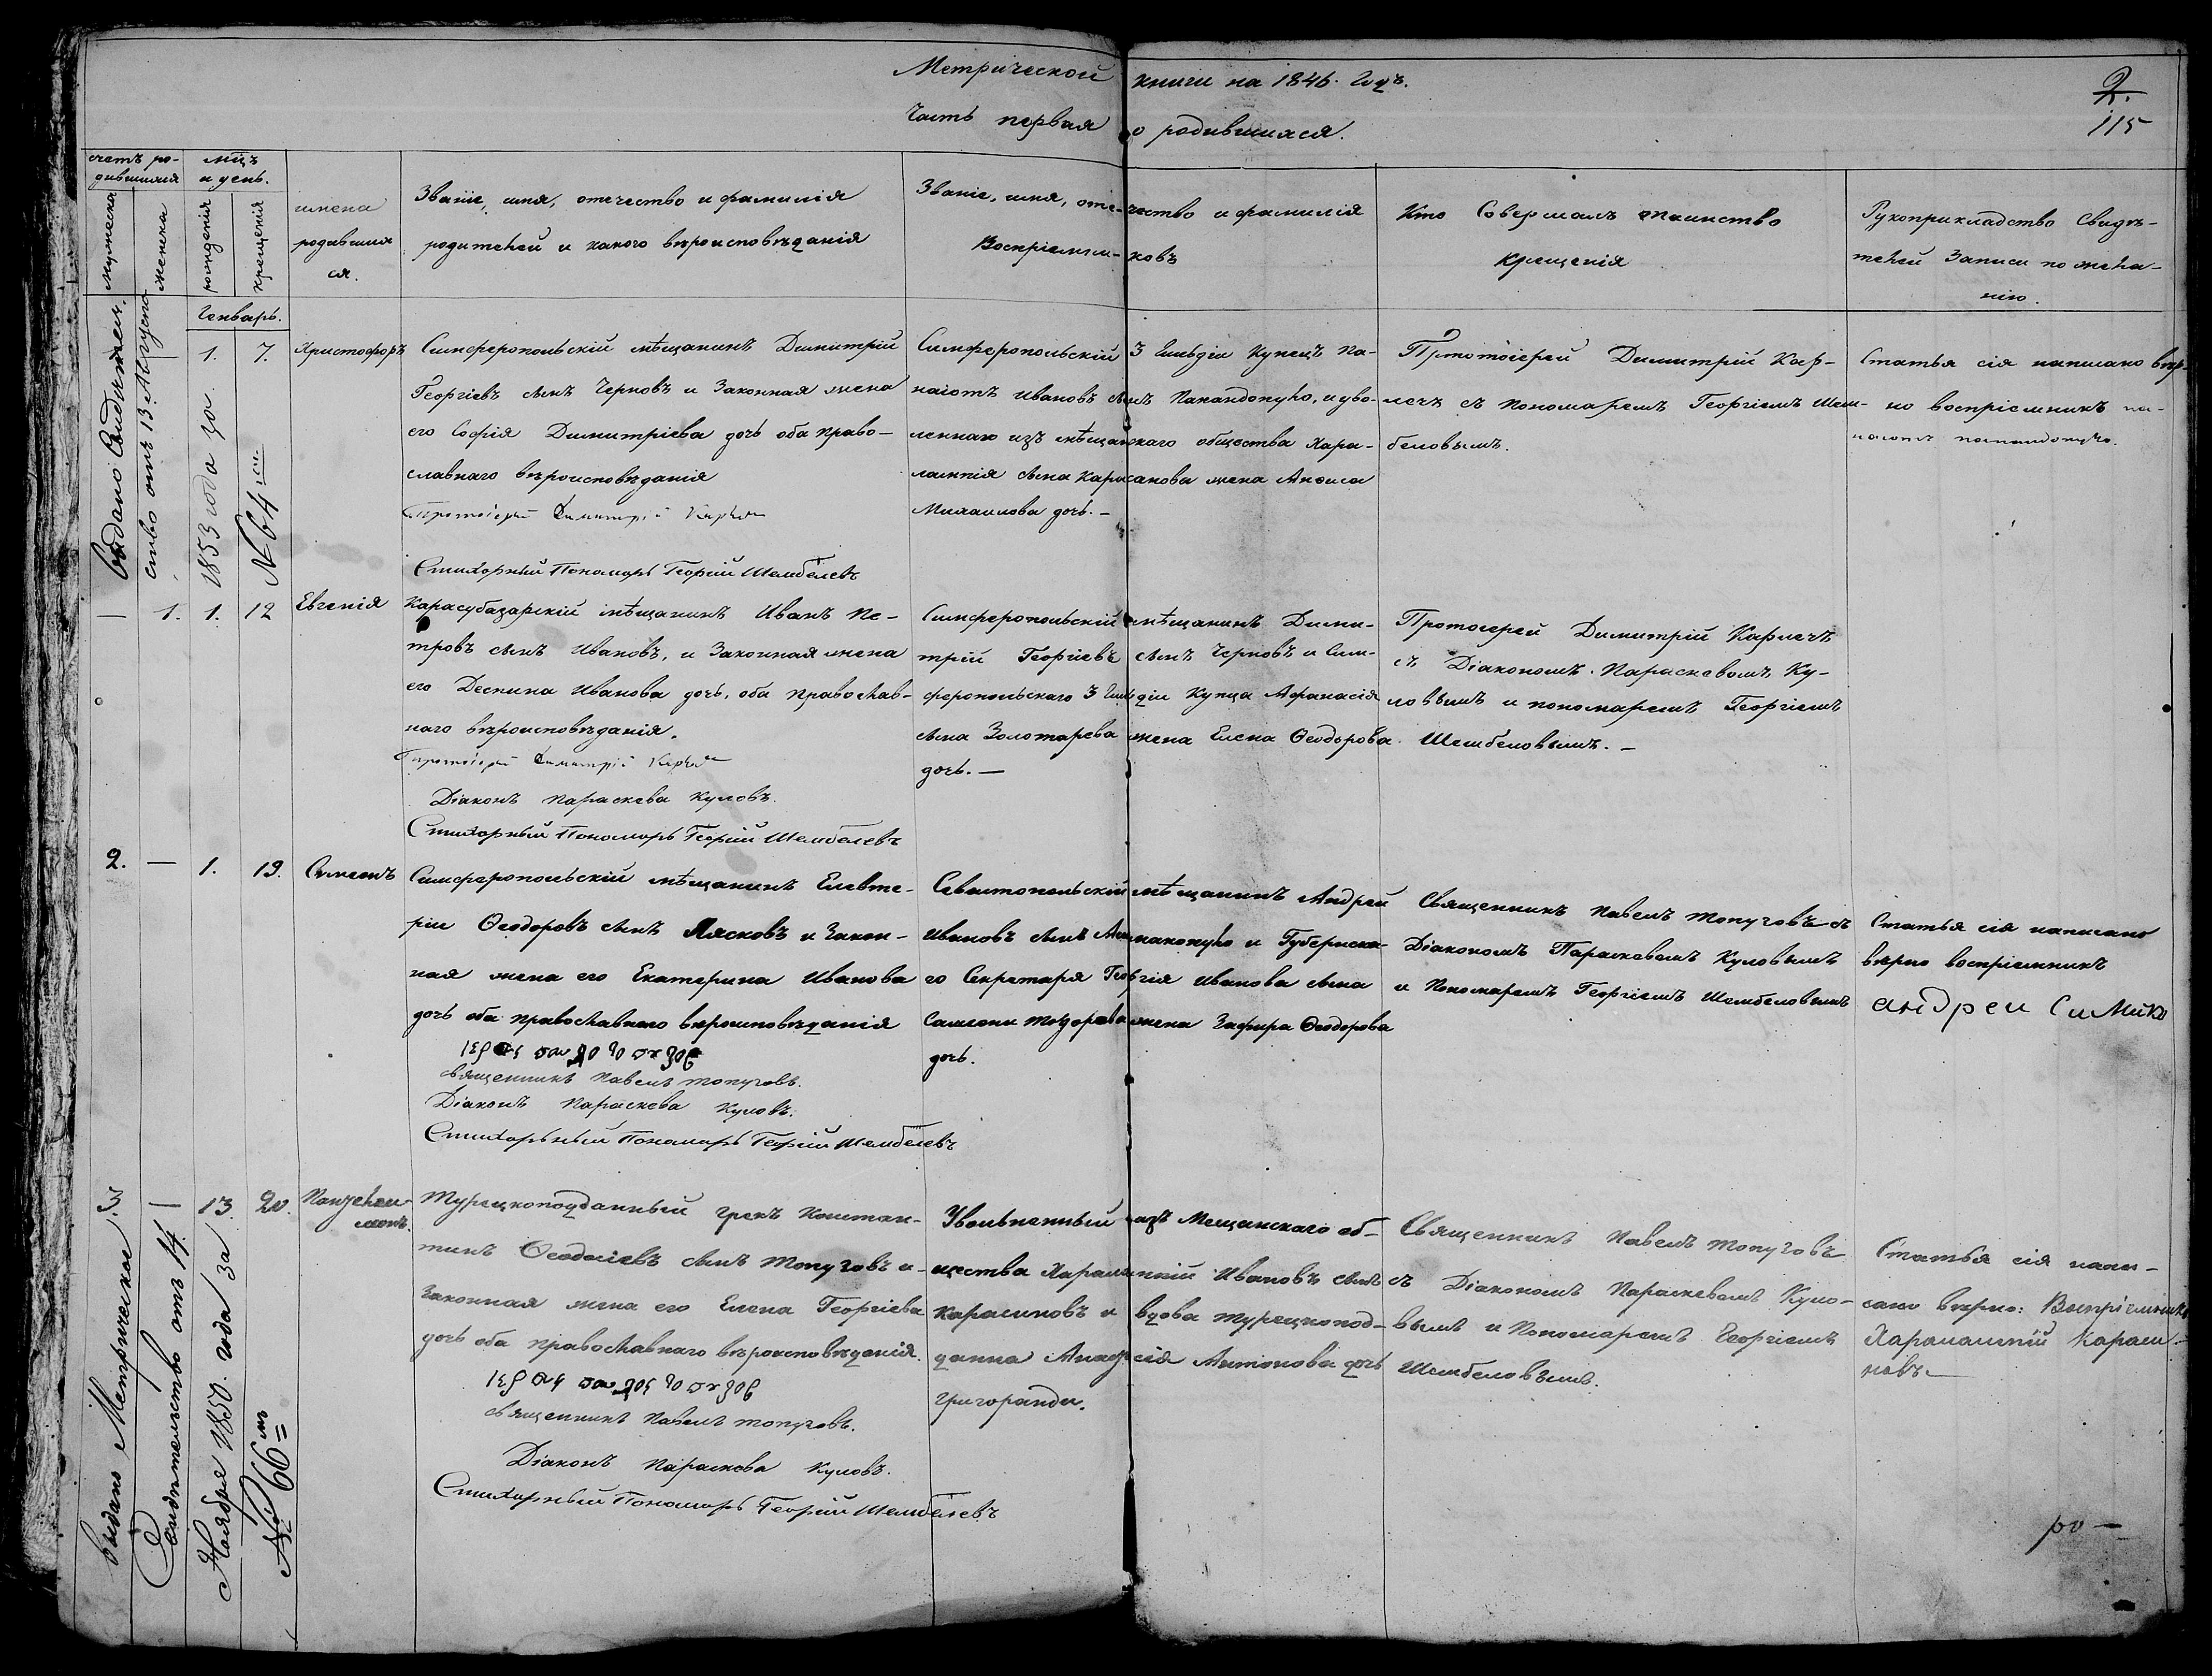 Метрической книги на 1846. Годъ.
Часть первая о родившихся.
2.
115
счетъ ро-
дившихся
мужеска
женска
мѣц.
и день.
рожденія
крещенія
имена
родивших
ся.
Званіе, имя, отечество и фамилія
родителей и какого вѣроисповѣданія
Званіе, имя, оте-чество и фамилія
Воспріемни-ковъ
Кто Совершалъ таинство
крещенія
Рукоприкладство Свидѣ-
телей Записи по жела-
нію.
Генварь.
Выдано Свидѣтель
ство отъ 13. Августа
1853 года за
№ 64
1.
7.
Христофоръ
Симферопольскій мѣщанинъ Димитрій
Георгіевъ сынъ Черновъ и Законная жена
его Софія Димитріева дочь оба право-
славнаго вѣроисповѣданія
Протоіерей Димитрій
Стихарный Пономарь Георгій Шембелевъ
Симферопольскій 3 Гильдіи Купецъ Па-
наіотъ Ивановъ сынъ Папандопуло, и уво-
леннаго изъ мѣщанскаго общества Хара-
лампія сына Карасанова жена Анфиса
Михаилова дочь. —
Протоіерей Димитрій Кар-
лечъ съ Пономаремъ Георгіемъ Шем-
беловымъ.
Статья сія написано вѣр-
но воспріемникъ па-
наіотъ
—
1.
1.
12
Евгенія
Карасубазарскій мѣщанинъ Иванъ Пе-
тровъ сынъ Ивановъ, и Законная жена
его Деспина Иванова дочь, оба Православ-
наго вѣроисповѣданія.
Протоіерей Димитрій
Діаконъ Параскева Куловъ.
Стихарный Пономарь Георгій Шембелевъ
Симферопольскій мѣщанинъ Дими-
трій Георгіевъ сынъ Черновъ и Сим-
феропольскаго 3 Гильдіи Купца Афанасія
сына Золотарева жена Елена Ѳеодорова
дочь. —
Протоіерей Димитрій Карлечъ
съ Діакономъ Параскевомъ, Ку-
ловымъ и пономаремъ Георгіемъ
Шембеловымъ. —
2.
—
1.
19.
Симеонъ
Симферопольскій мѣщанинъ Елевте-
ріи Ѳеодоровъ сынъ Лясковъ и Закон-
ная жена его Екатерина Иванова
дочь оба православнаго вѣроисповѣданія
священникъ Павелъ топуговъ.
Діаконъ Параскева Куловъ.
Стихарьный Пономарь Георгій Шембелевъ
Севастопольскій мѣщанинъ Андрей
Ивановъ сынъ и Губернска-
го Секретаря Георгія Иванова сына
жена Зафира Ѳеодорова
дочь.
Священникъ Павелъ топуговъ съ
Діакономъ Параскевомъ Куловымъ
и Пономаремъ Георгіемъ Шембеловымъ
Статья сія написано
вѣрно воспріемникъ
андреи
3.
—
13.
20.
Пантелеи-
монъ.
Выдано Метрическое
Свидѣтельство отъ 14.
Ноября 1850. года За
№ 66
Турецкоподданный грекъ Констан-
тинъ Ѳеодосіевъ сынъ Топуговъ и
Законная жена его Елена Георгіева
дочь оба православнаго вѣроисповѣданія.
священникъ Павелъ топуговъ.
Діаконъ Параскева Куловъ.
Стихарный Пономарь Георгій Шембелевъ
Увольненный изъ Мещанскаго об-
щества Харалампій Ивановъ сынъ
Карасиновъ и вдова турецкопод-
данна Антонова дочь
григоранди.
Священникъ Павелъ топуговъ
съ Діакономъ Параскевомъ Куло-
вымъ и Пономаремъ Георгіемъ
Шембеловымъ.
Статья сія напи-
сано вѣрно: Воспріемникъ
Харалампій Караси-
новъ
ро —